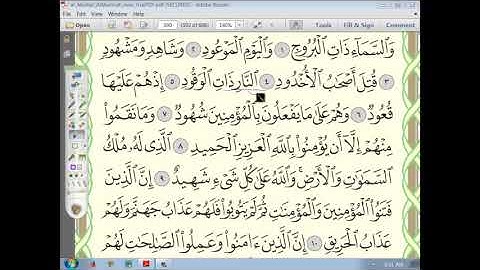 Open
590
(592 of 606)
140%
Tools
Fill & Sign
Comment
وَٱلسَّمَآءِ ذَاتِ ٱلْبُرُوجِ ١ وَٱلْيَوْمِ ٱلْمَوْعُودِ ٢ وَشَاهِدٍ وَمَشْهُودٍ
٣ قُتِلَ أَصْحَٰبُ ٱلْأُخْدُودِ ٤ ٱلنَّارِ ذَاتِ ٱلْوَقُودِ ٥ إِذْ هُمْ عَلَيْهَا
قُعُودٌ ٦ وَهُمْ عَلَىٰ مَا يَفْعَلُونَ بِٱلْمُؤْمِنِينَ شُهُودٌ ٧ وَمَا نَقَمُوا۟
مِنْهُمْ إِلَّآ أَن يُؤْمِنُوا۟ بِٱللَّهِ ٱلْعَزِيزِ ٱلْحَمِيدِ ٨ ٱلَّذِى لَهُۥ مُلْكُ
ٱلسَّمَٰوَٰتِ وَٱلْأَرْضِ ۚ وَٱللَّهُ عَلَىٰ كُلِّ شَىْءٍ شَهِيدٌ ٩ إِنَّ ٱلَّذِينَ
فَتَنُوا۟ ٱلْمُؤْمِنِينَ وَٱلْمُؤْمِنَٰتِ ثُمَّ لَمْ يَتُوبُوا۟ فَلَهُمْ عَذَابُ جَهَنَّمَ وَلَهُمْ
عَذَابُ ٱلْحَرِيقِ ١٠ إِنَّ ٱلَّذِينَ ءَامَنُوا۟ وَعَمِلُوا۟ ٱلصَّٰلِحَٰتِ لَهُمْ